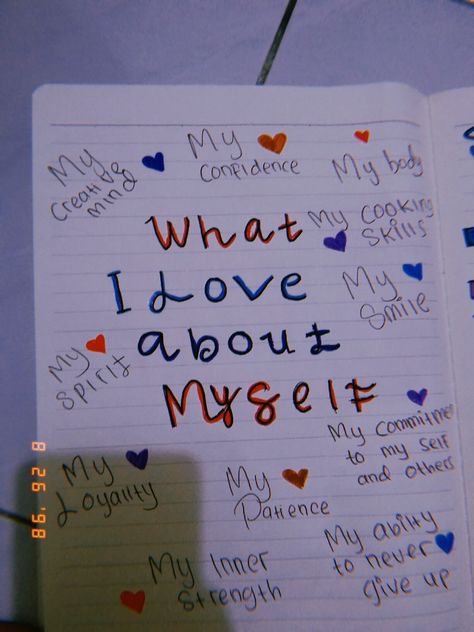 My
Creative
mind
My
Confidence
My body
What
My COOKing
SKills
I Love
My
Smile
about
My
Spirit
Myself
My Commitme
to my self
and others
My
Loyality
My
Patience
My abilty
to never
give up
My Inner
Strength
8 26 '98